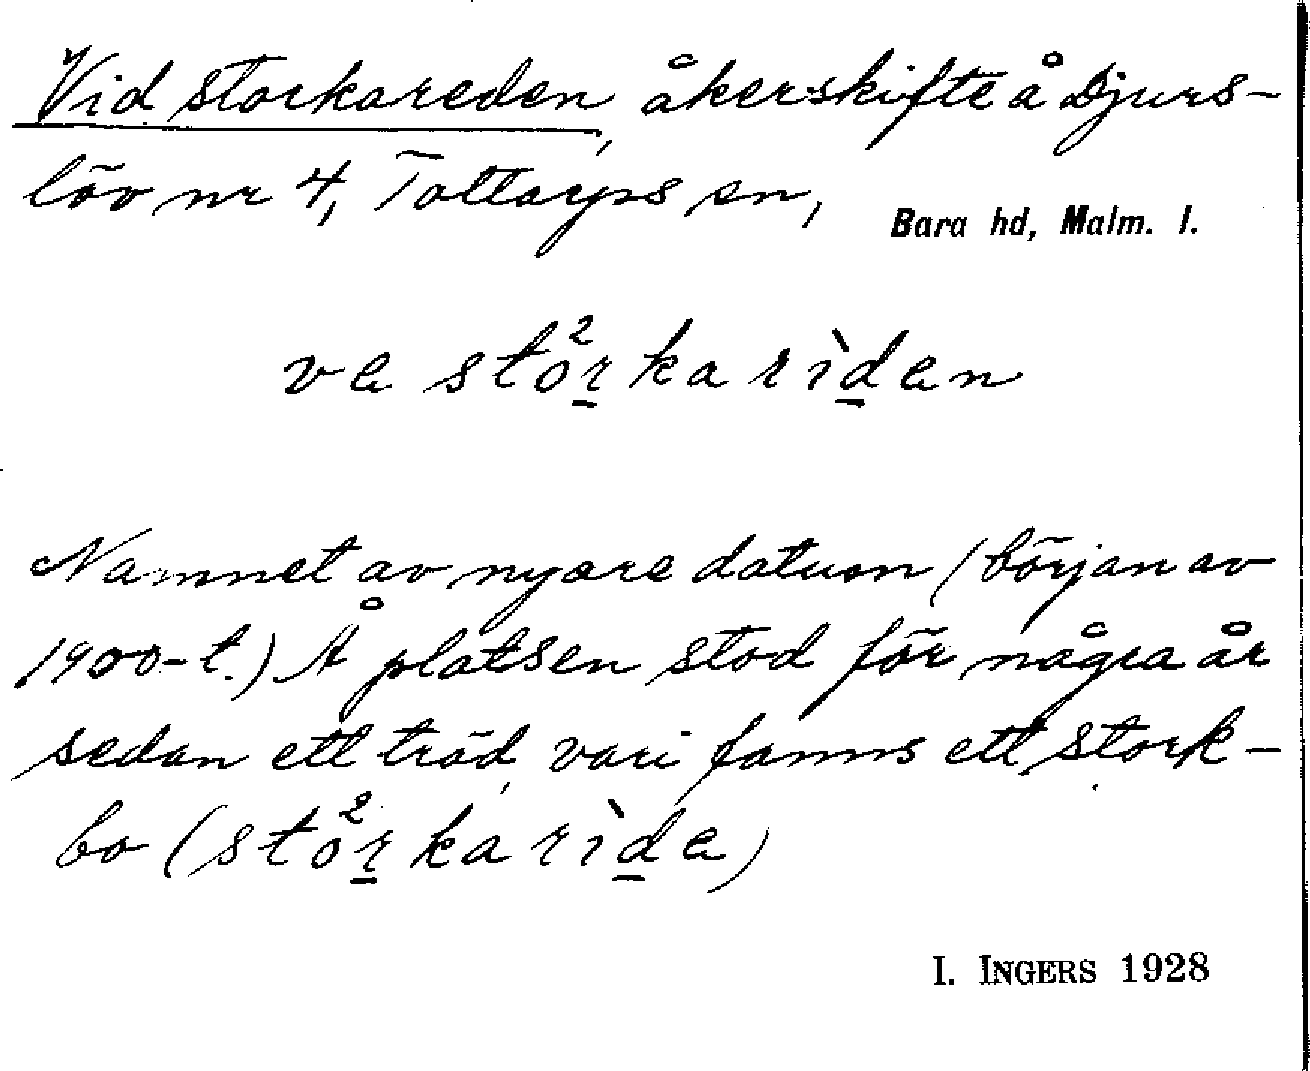 Vid storkareden, åkerskifte å Djurs-
löv nr 4, Tottarps sn,
Bara hd, Malm. l.
va stо̊²rkarìdan
Namnet av nyare datum (början av
1900-t.) Å platsen stod för några år
sedan ett träd, vari fanns ett stork-
bo (stо̊²rkarìda)
I. INGERS 1928